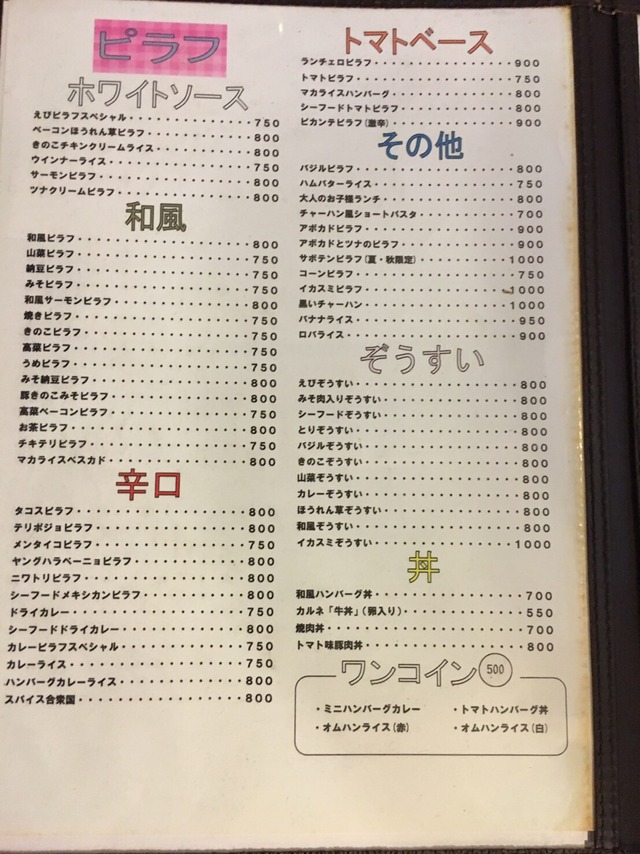 ピラフ
ホワイトソース
えびピラフスペシャル・・・・・・・・・・・・・・750
ベーコンほうれん草ピラフ・・・・・・・・・・・・800
きのこチキンクリームライス・・・・・・・・・・・800
ウインナーライス・・・・・・・・・・・・・・・・750
サーモンピラフ・・・・・・・・・・・・・・・・・800
ツナクリームピラフ・・・・・・・・・・・・・・・800
和風
和風ピラフ・・・・・・・・・・・・・・・・・・・800
山菜ピラフ・・・・・・・・・・・・・・・・・・・750
納豆ピラフ・・・・・・・・・・・・・・・・・・・750
みそピラフ・・・・・・・・・・・・・・・・・・・750
和風サーモンピラフ・・・・・・・・・・・・・・・800
焼きピラフ・・・・・・・・・・・・・・・・・・・750
きのこピラフ・・・・・・・・・・・・・・・・・・750
高菜ピラフ・・・・・・・・・・・・・・・・・・・750
うめピラフ・・・・・・・・・・・・・・・・・・・750
みそ納豆ピラフ・・・・・・・・・・・・・・・・・800
豚きのこみそピラフ・・・・・・・・・・・・・・・800
高菜ベーコンピラフ・・・・・・・・・・・・・・・750
お茶ピラフ・・・・・・・・・・・・・・・・・・・800
チキテリピラフ・・・・・・・・・・・・・・・・・750
マカライスペスカド・・・・・・・・・・・・・・・800
辛口
タコスピラフ・・・・・・・・・・・・・・・・・・800
テリポジョピラフ・・・・・・・・・・・・・・・・800
メンタイコピラフ・・・・・・・・・・・・・・・・750
ヤングハラペーニョピラフ・・・・・・・・・・・・800
ニワトリピラフ・・・・・・・・・・・・・・・・・800
シーフードメキシカンピラフ・・・・・・・・・・・800
ドライカレー・・・・・・・・・・・・・・・・・・750
シーフードドライカレー・・・・・・・・・・・・・800
カレーピラフスペシャル・・・・・・・・・・・・・750
カレーライス・・・・・・・・・・・・・・・・・・750
ハンバーグカレーライス・・・・・・・・・・・・・800
スパイス合衆国・・・・・・・・・・・・・・・・・800
トマトベース
ランチェロピラフ・・・・・・・・・・・・・・・・900
トマトピラフ・・・・・・・・・・・・・・・・・・750
マカライスハンバーグ・・・・・・・・・・・・・・800
シーフードトマトピラフ・・・・・・・・・・・・・800
ピカンテピラフ(激辛)・・・・・・・・・・・・・・900
その他
バジルピラフ・・・・・・・・・・・・・・・・・・800
ハムバターライス・・・・・・・・・・・・・・・・750
大人のお子様ランチ・・・・・・・・・・・・・・・800
チャーハン風ショートパスタ・・・・・・・・・・・700
アボカドピラフ・・・・・・・・・・・・・・・・・900
アボカドとツナのピラフ・・・・・・・・・・・・・900
サボテンピラフ(夏・秋限定)・・・・・・・・・・・1000
コーンピラフ・・・・・・・・・・・・・・・・・・750
イカスミピラフ・・・・・・・・・・・・・・・・・1000
黒いチャーハン・・・・・・・・・・・・・・・・・1000
バナナライス・・・・・・・・・・・・・・・・・・950
ロバライス・・・・・・・・・・・・・・・・・・・900
ぞうすい
えびぞうすい・・・・・・・・・・・・・・・・・・800
みそ肉入りぞうすい・・・・・・・・・・・・・・・800
シーフードぞうすい・・・・・・・・・・・・・・・800
とりぞうすい・・・・・・・・・・・・・・・・・・800
バジルぞうすい・・・・・・・・・・・・・・・・・800
きのこぞうすい・・・・・・・・・・・・・・・・・800
山菜ぞうすい・・・・・・・・・・・・・・・・・・800
カレーぞうすい・・・・・・・・・・・・・・・・・800
ほうれん草ぞうすい・・・・・・・・・・・・・・・800
和風ぞうすい・・・・・・・・・・・・・・・・・・800
イカスミぞうすい・・・・・・・・・・・・・・・・1000
丼
和風ハンバーグ丼・・・・・・・・・・・・・・・・700
カルネ「牛丼」(卵入り)・・・・・・・・・・・・・550
焼肉丼・・・・・・・・・・・・・・・・・・・・・700
トマト味豚肉丼・・・・・・・・・・・・・・・・・800
ワンコイン 500
・ミニハンバーグカレー ・トマトハンバーグ丼
・オムハンライス(赤) ・オムハンライス(白)